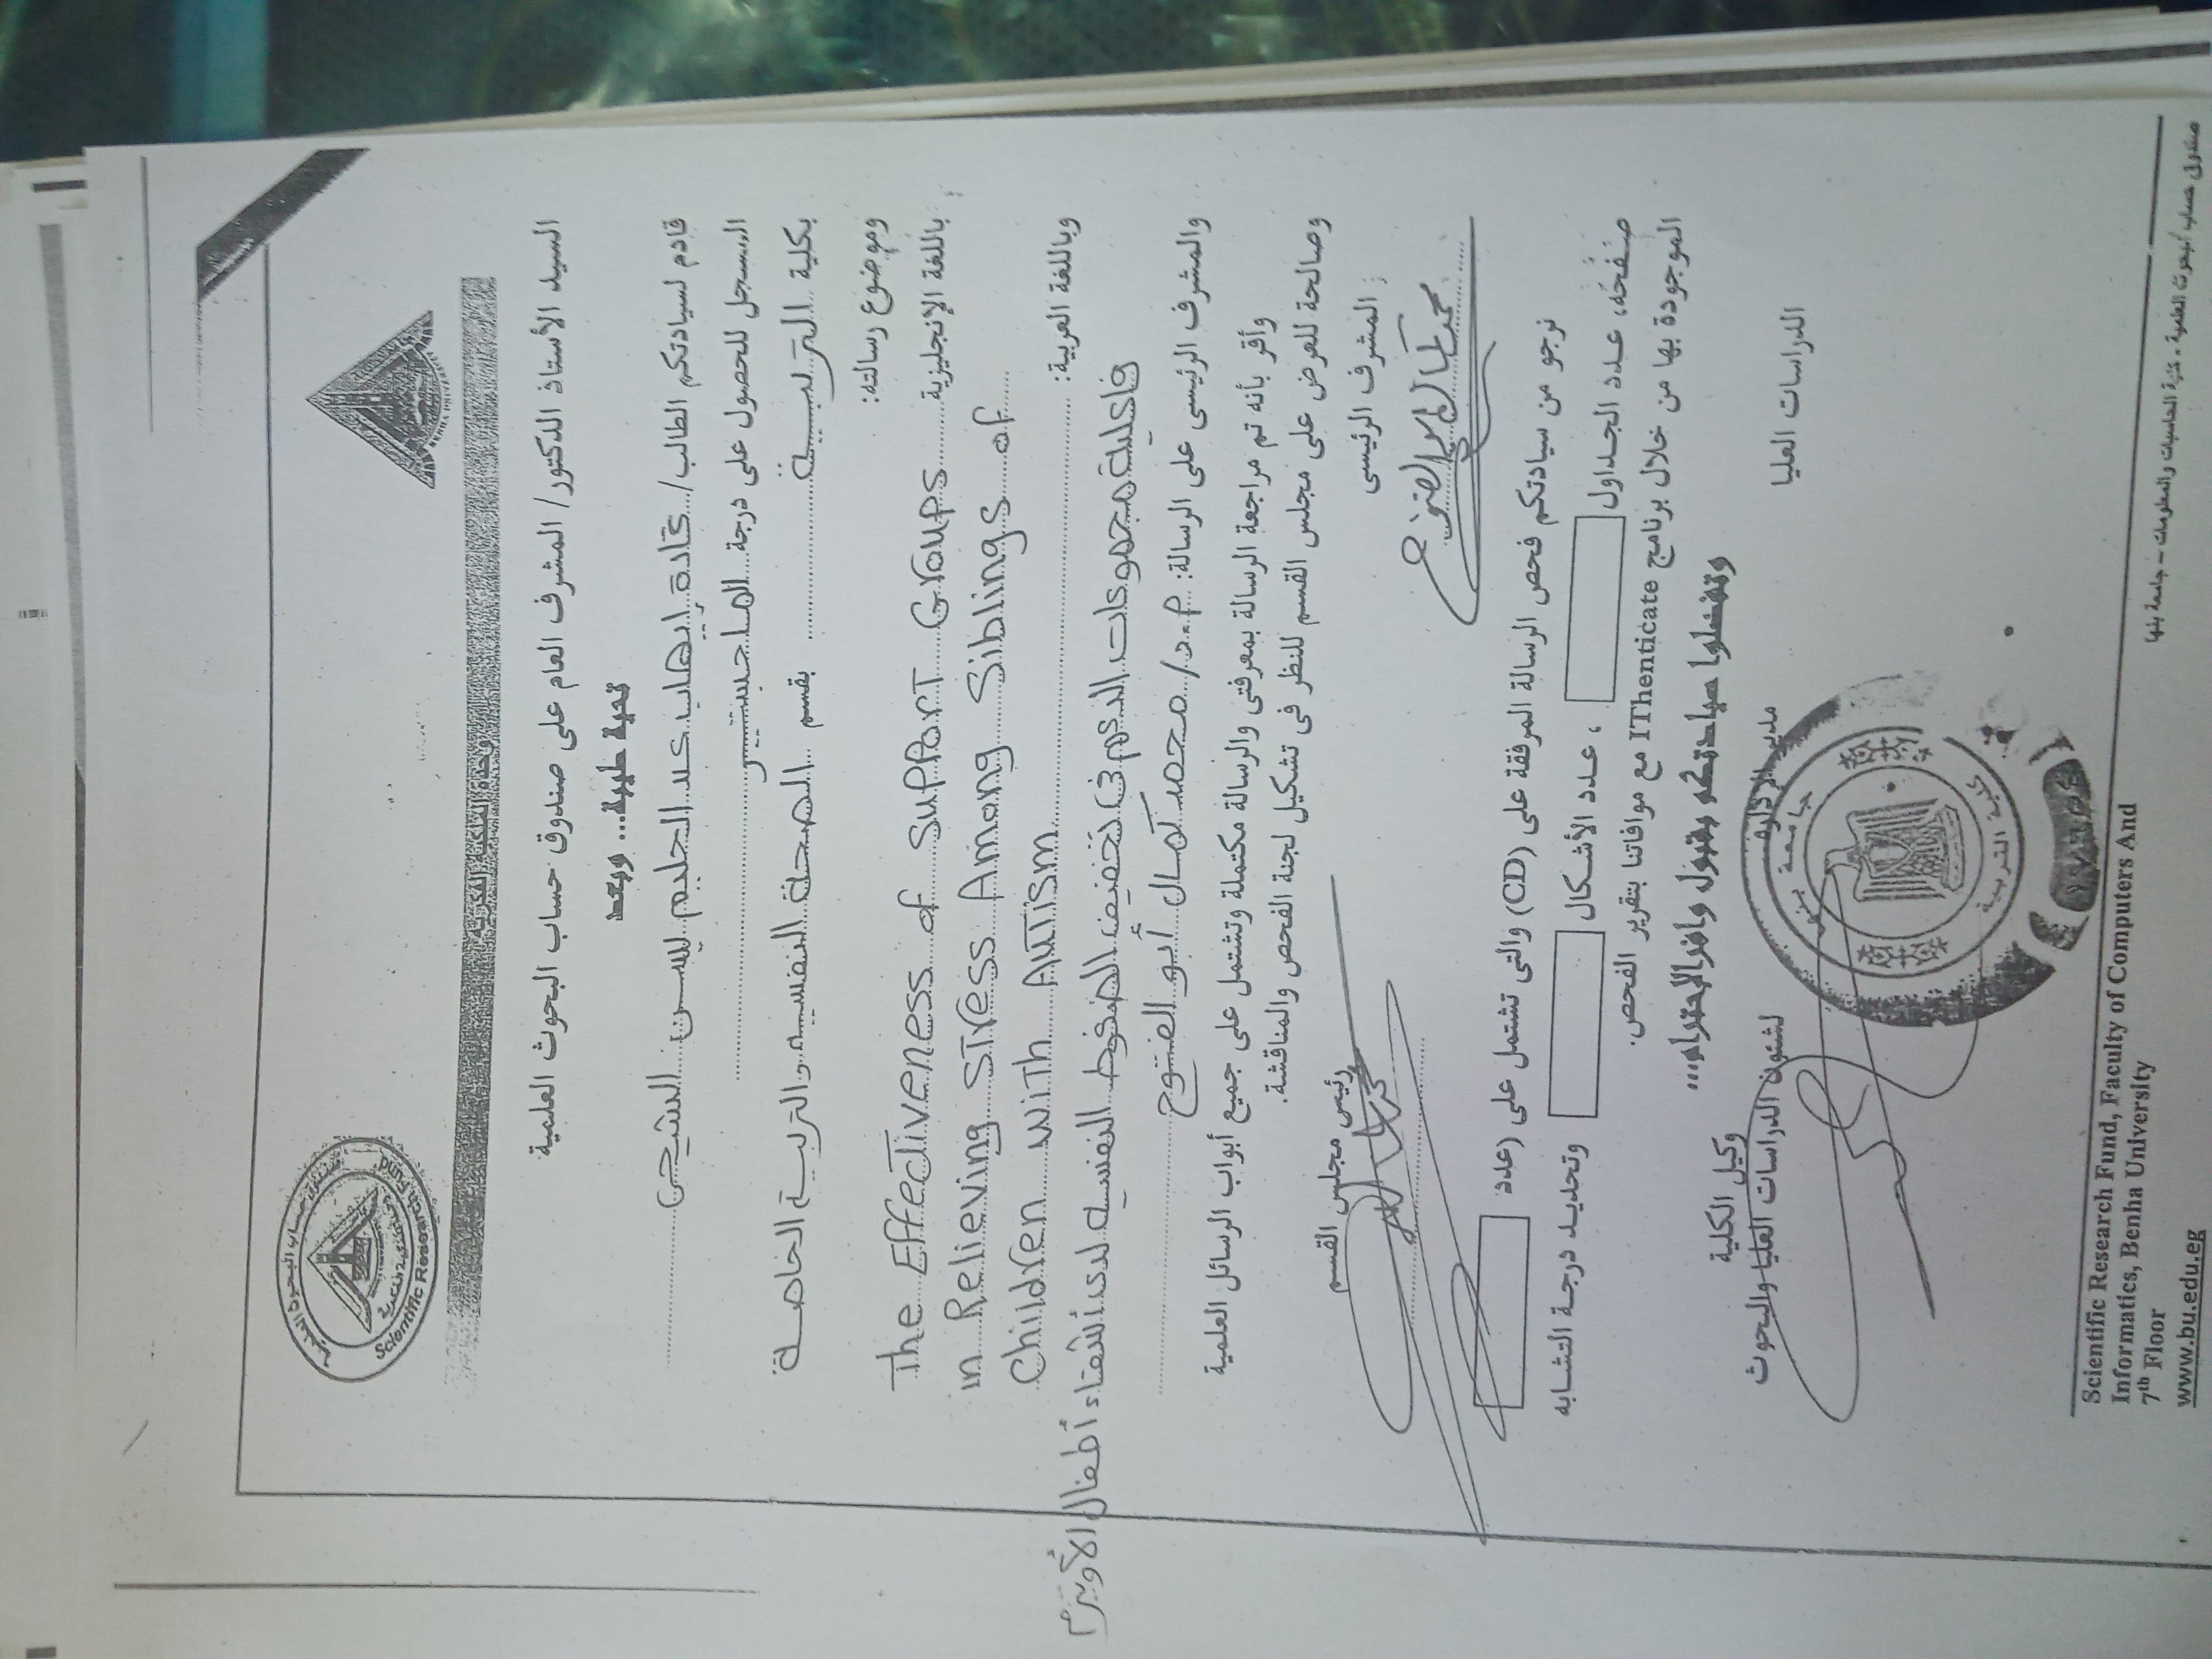 صندوق حساب البحوث العلمية
Scientific Research Fund
BENHA UNIVERSITY
السيد الأستاذ الدكتور/ المشرف العام على صندوق حساب البحوث العلمية
تحية طيبة... وبعد
قادم لسيادتكم الطالب/ غادة إيهاب عبد الحليم يسن الشيحى
المسجل للحصول على درجة الماجستير
بكلية التربية بقسم الصحة النفسيه والتربية الخاصة
وموضوع رسالته:
باللغة الإنجليزية: The Effectiveness of support Groups
in Relieving stress Among Siblings of
Children with Autism
وباللغة العربية:
فاعلية مجموعات الدعم فى تخفيف الضغوط النفسيه لدى أشقاء أطفال الأوتيزم
والمشرف الرئيسى على الرسالة: م.د/ محمد كمال أبو الفتوح
وأقر بأنه تم مراجعة الرسالة بمعرفتى والرسالة مكتملة وتشتمل على جميع أبواب الرسائل العلمية
وصالحة للعرض على مجلس القسم للنظر فى تشكيل لجنة الفحص والمناقشة.
المشرف الرئيسى رئيس مجلس القسم
محمد كمال أبو الفتوح
نرجو من سيادتكم فحص الرسالة المرفقة على (CD) والتى تشتمل على (عدد
صفحة، عدد الجداول ، عدد الأشكال وتحديد درجة التشابه
الموجودة بها من خلال برنامج IThenticate مع موافاتنا بتقرير الفحص.
وتفضلوا سيادتكم بقبول وافر الاحترام،،،
مدير إدارة وكيل الكلية
الدراسات العليا لشئون الدراسات العليا والبحوث
جامعة بنها
كلية التربية
Scientific Research Fund, Faculty of Computers And
Informatics, Benha University
7th Floor
www.bu.edu.eg
صندوق حساب البحوث العلمية - كلية الحاسبات والمعلومات - جامعة بنها